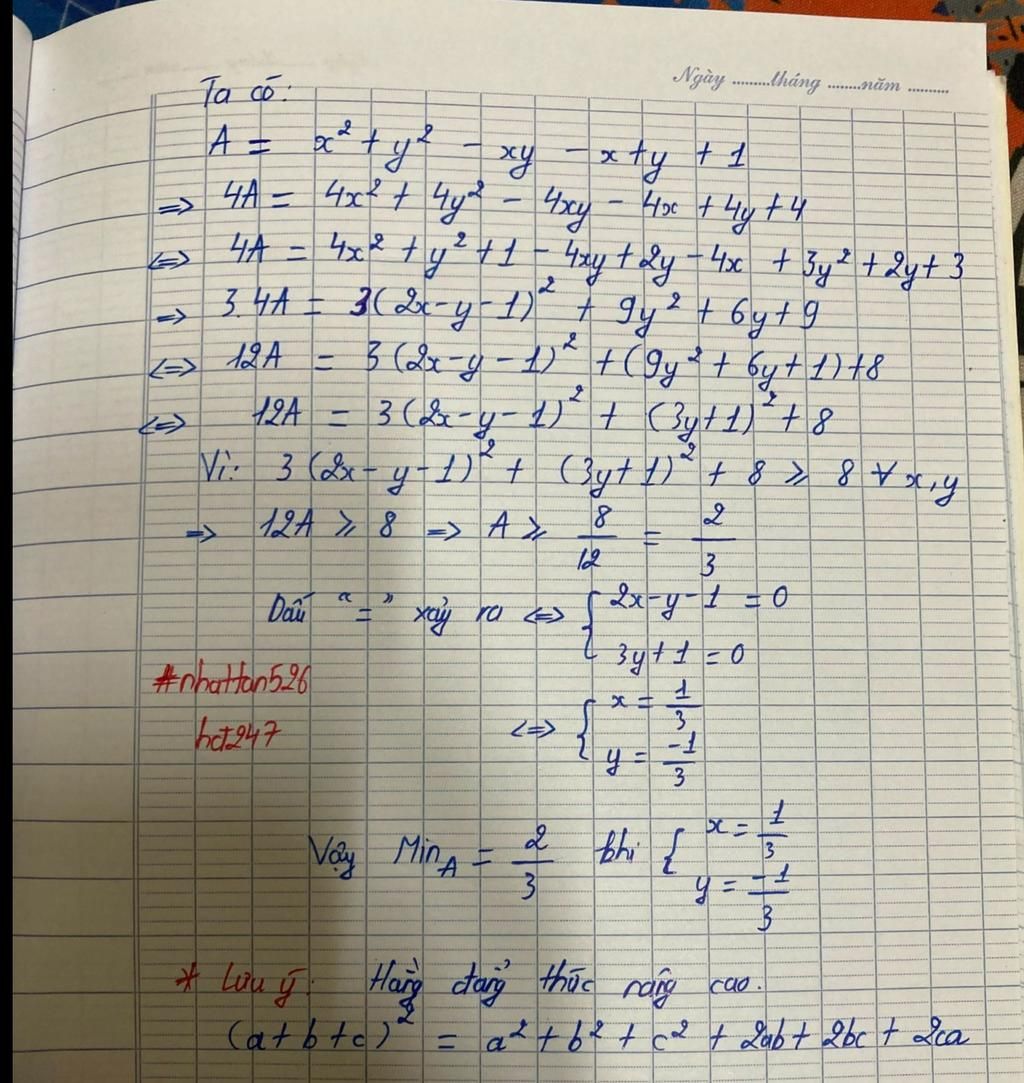 Ngày .........tháng .......năm .........
Ta có:
A = x² + y² - xy - x + y + 1
=> 4A = 4x² + 4y² - 4xy - 4x + 4y + 4
<=> 4A = 4x² + y² + 1 - 4xy + 2y - 4x + 3y² + 2y + 3
=> 3.4A = 3(2x-y-1)² + 9y² + 6y + 9
<=> 12A = 3(2x-y-1)² + (9y² + 6y + 1) + 8
<=> 12A = 3(2x-y-1)² + (3y+1)² + 8
Vì: 3(2x-y-1)² + (3y+1)² + 8 ≥ 8 ∀ x,y
=> 12A ≥ 8 => A ≥ 8/12 = 2/3
Dấu "=" xảy ra <=> { 2x-y-1 = 0
3y+1 = 0
#nhattan526
hct247
<=> { x = 1/3
y = -1/3
Vậy Min_A = 2/3 khi { x = 1/3
y = -1/3
* Lưu ý: Hằng đẳng thức nâng cao.
(a+b+c)² = a² + b² + c² + 2ab + 2bc + 2ca